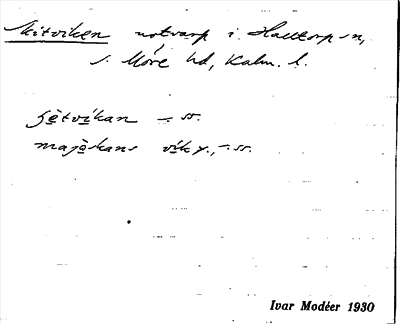 Kitviken notvarp i Halltorp sn,
s. Möre hd, Kalm. l.
jètvíkan – ss.
majèskans vík y., – ss.
Ivar Modéer 1930